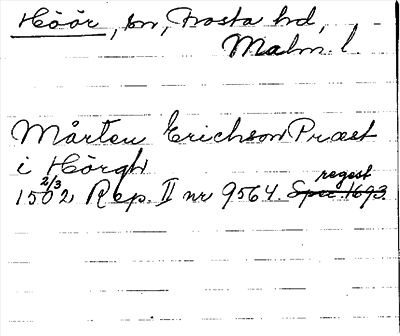 Höör, sn, Frosta hd,
Malm. l.
Mårten Erichson Præst
i Hörgh
1502 2/3 Rep. II nr 9564. Spec 1693. regest